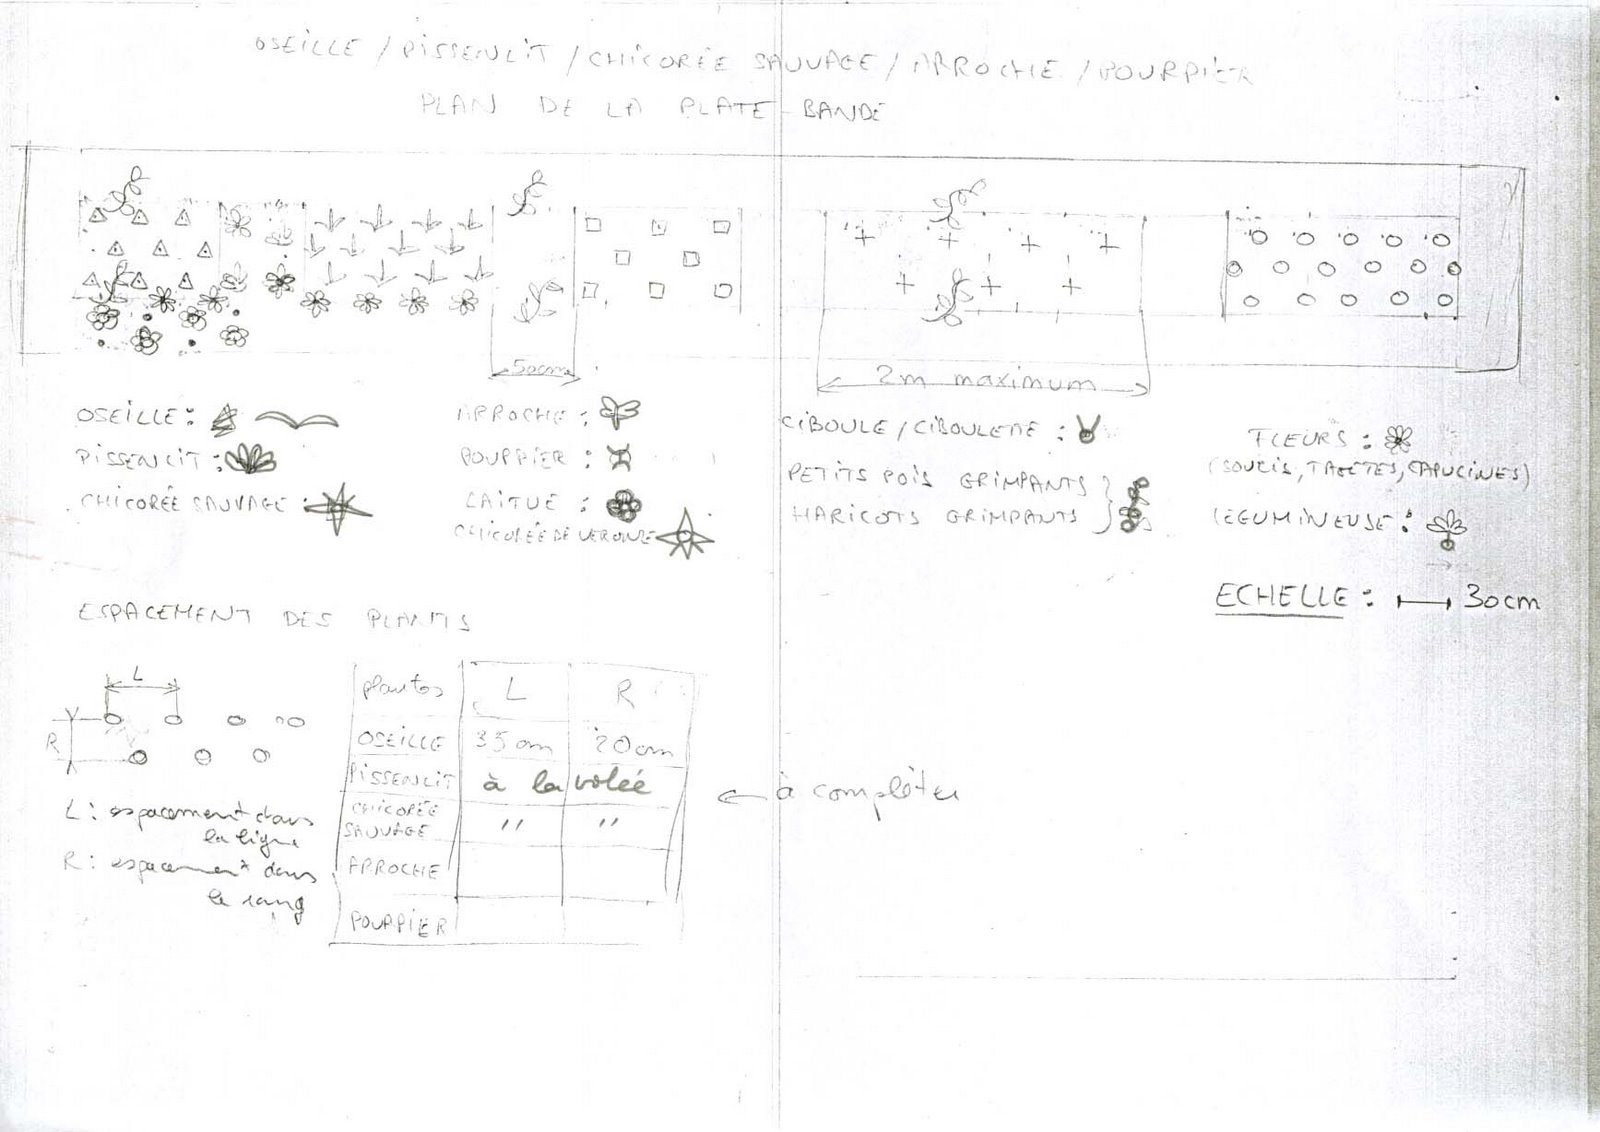 OSEILLE / PISSENLIT / CHICORÉE SAUVAGE / ARROCHE / POURPIER
PLAN DE LA PLATE-BANDE
50cm
2m maximum
OSEILLE :
PISSENLIT :
CHICORÉE SAUVAGE :
ARROCHE :
POURPIER :
LAITUE :
CHICORÉE DE VERONE
CIBOULE / CIBOULETTE :
PETITS POIS GRIMPANTS
HARICOTS GRIMPANTS
FLEURS :
(SOUCIS, TAGETES, CAPUCINES)
LEGUMINEUSE :
ECHELLE : 30cm
ESPACEMENT DES PLANTS
L
R
L : espacement dans
la ligne
R : espacement dans
le rang
plantes L R
OSEILLE 35cm 20cm
PISSENLIT à la volée
CHICORÉE
SAUVAGE " "
ARROCHE
POURPIER
← à compléter